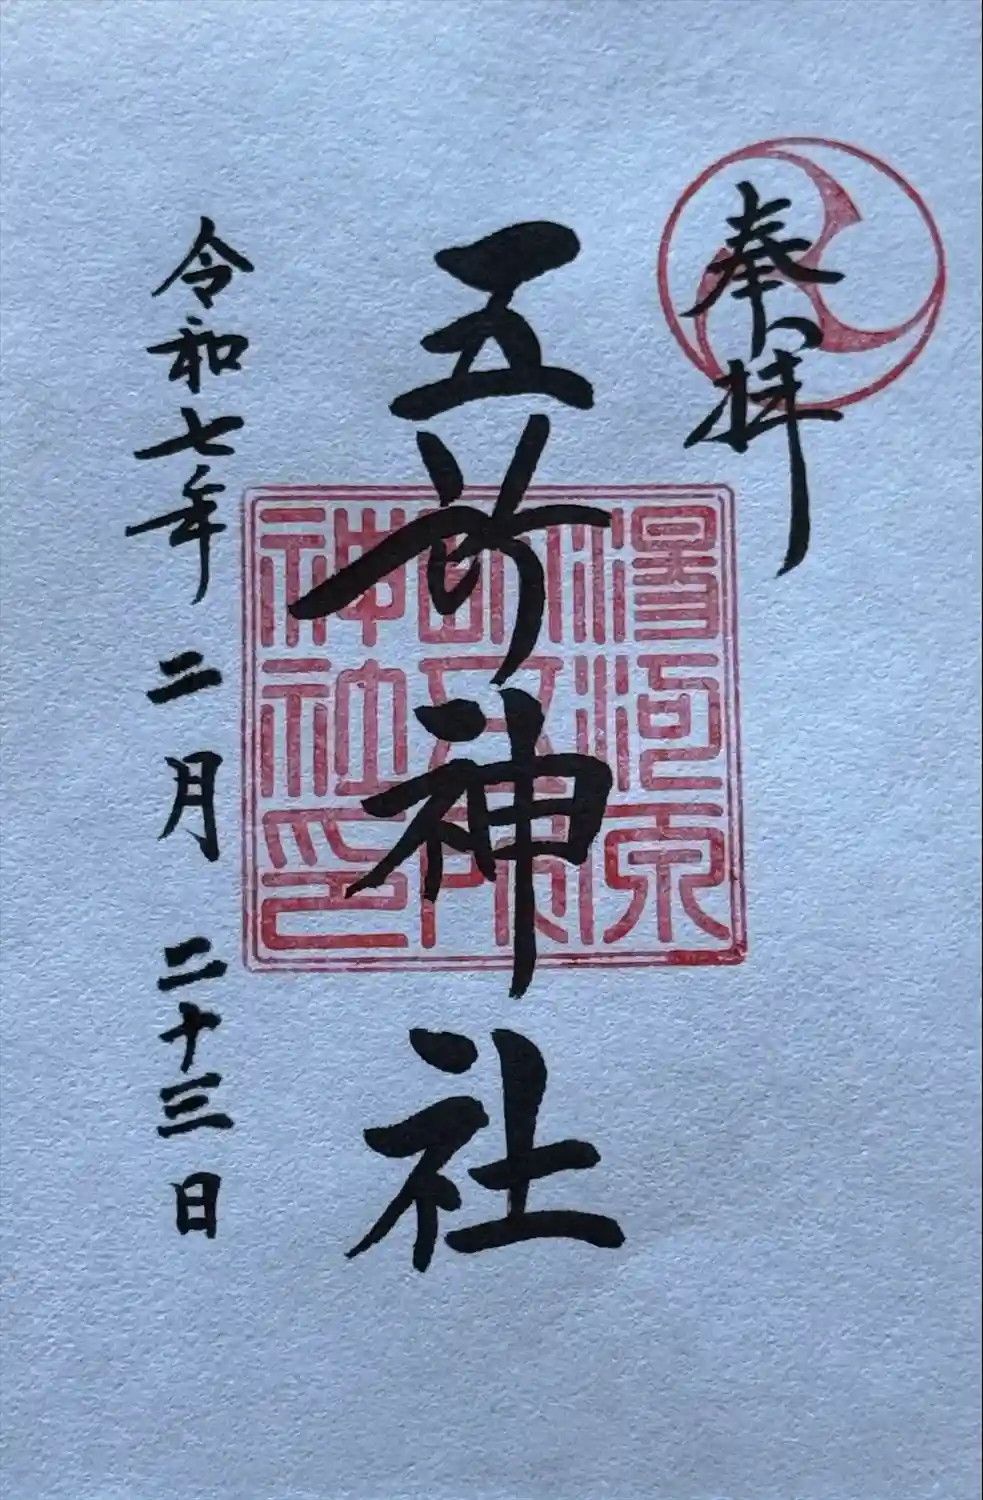 奉拝
五所神社
湯河原
神社印
令和七年二月二十三日